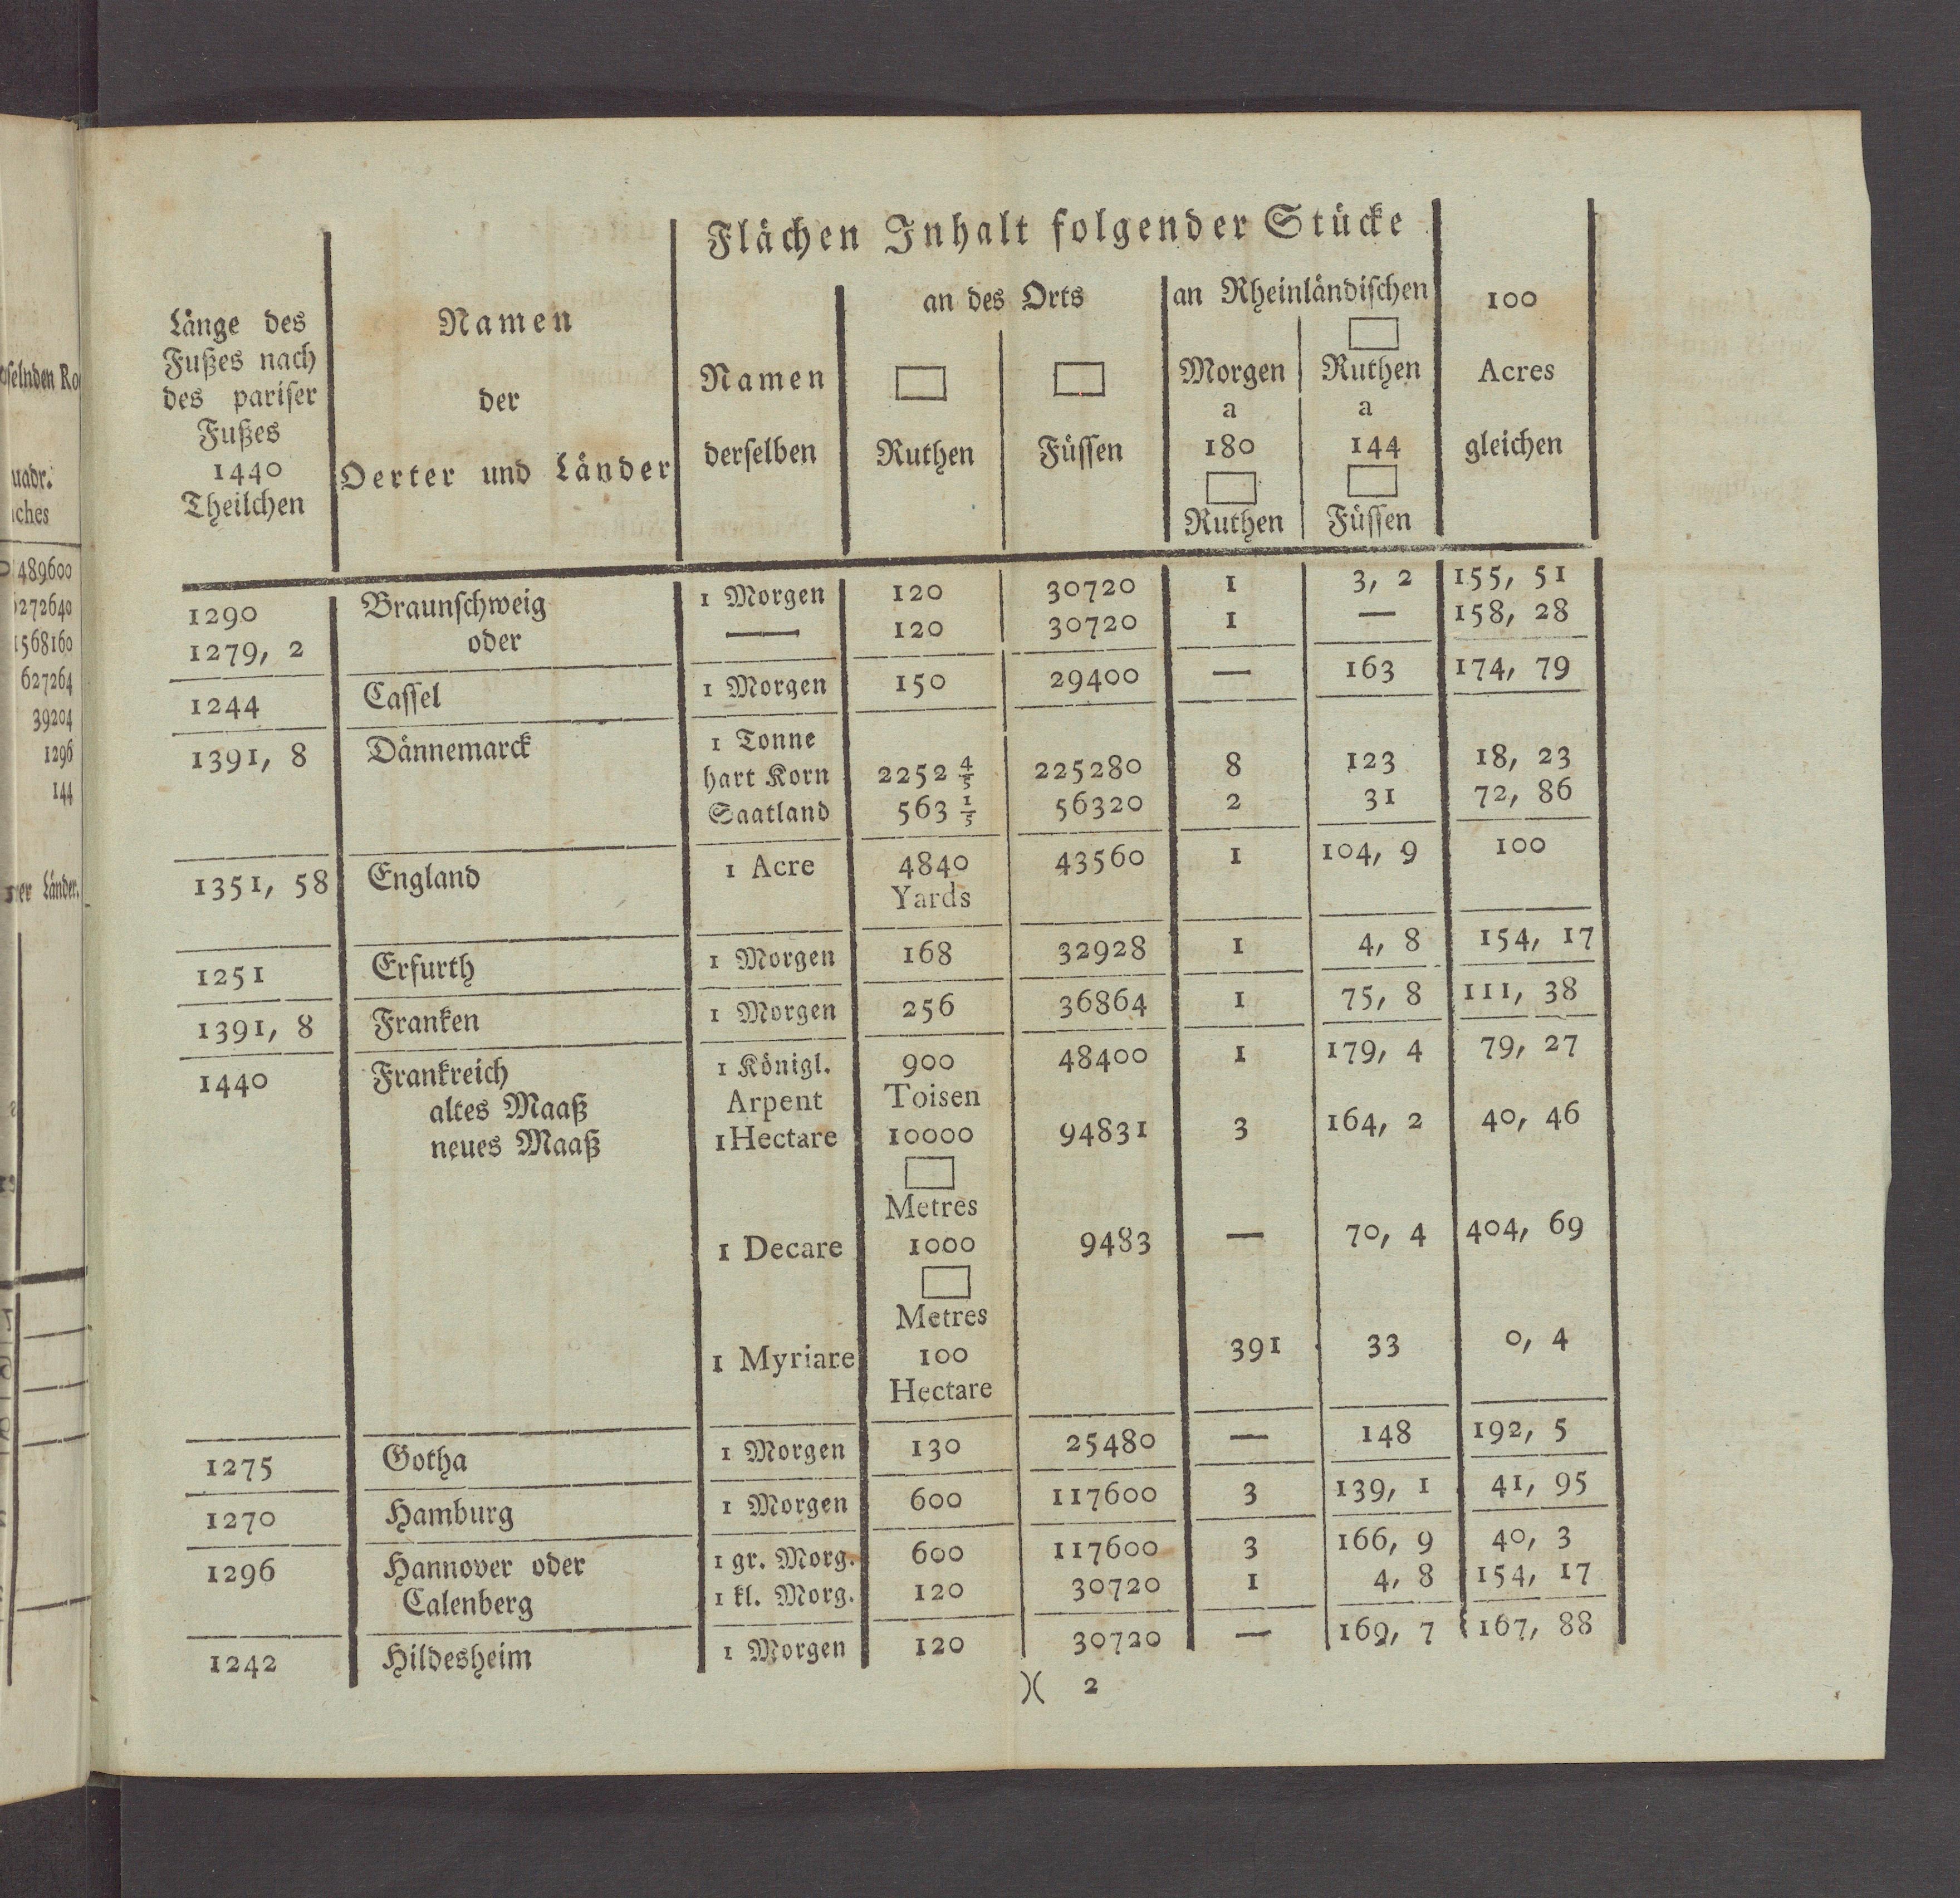 Flächen Inhalt folgender Stücke
Länge des Fußes nach des pariser Fußes 1440 Theilchen | Namen der Oerter und Länder | Namen derselben | an des Orts □ Ruthen | □ Füssen | an Rheinländischen Morgen a 180 □ Ruthen | □ Ruthen a 144 □ Füssen | 100 Acres gleichen
1290 | Braunschweig | 1 Morgen | 120 | 30720 | 1 | 3, 2 | 155, 51
1279, 2 | oder | — | 120 | 30720 | 1 | — | 158, 28
1244 | Cassel | 1 Morgen | 150 | 29400 | — | 163 | 174, 79
1391, 8 | Dännemarck | 1 Tonne
hart Korn | 2252 4/5 | 225280 | 8 | 123 | 18, 23
Saatland | 563 1/5 | 56320 | 2 | 31 | 72, 86
1351, 58 | England | 1 Acre | 4840 | 43560 | 1 | 104, 9 | 100
Yards
1251 | Erfurth | 1 Morgen | 168 | 32928 | 1 | 4, 8 | 154, 17
1391, 8 | Franken | 1 Morgen | 256 | 36864 | 1 | 75, 8 | 111, 38
1440 | Frankreich | 1 Königl. | 900 | 48400 | 1 | 179, 4 | 79, 27
altes Maaß | Arpent | Toisen
neues Maaß | 1 Hectare | 10000 | 94831 | 3 | 164, 2 | 40, 46
□
Metres
1 Decare | 1000 | 9483 | — | 70, 4 | 404, 69
□
Metres
1 Myriare | 100 | 391 | 33 | 0, 4
Hectare
1275 | Gotha | 1 Morgen | 130 | 25480 | — | 148 | 192, 5
1270 | Hamburg | 1 Morgen | 600 | 117600 | 3 | 139, 1 | 41, 95
1296 | Hannover oder | 1 gr. Morg. | 600 | 117600 | 3 | 166, 9 | 40, 3
Calenberg | 1 kl. Morg. | 120 | 30720 | 1 | 4, 8 | 154, 17
1242 | Hildesheim | 1 Morgen | 120 | 30720 | — | 169, 7 | 167, 88
)( 2
489600
272640
1568160
627264
39204
1296
144
Länder.